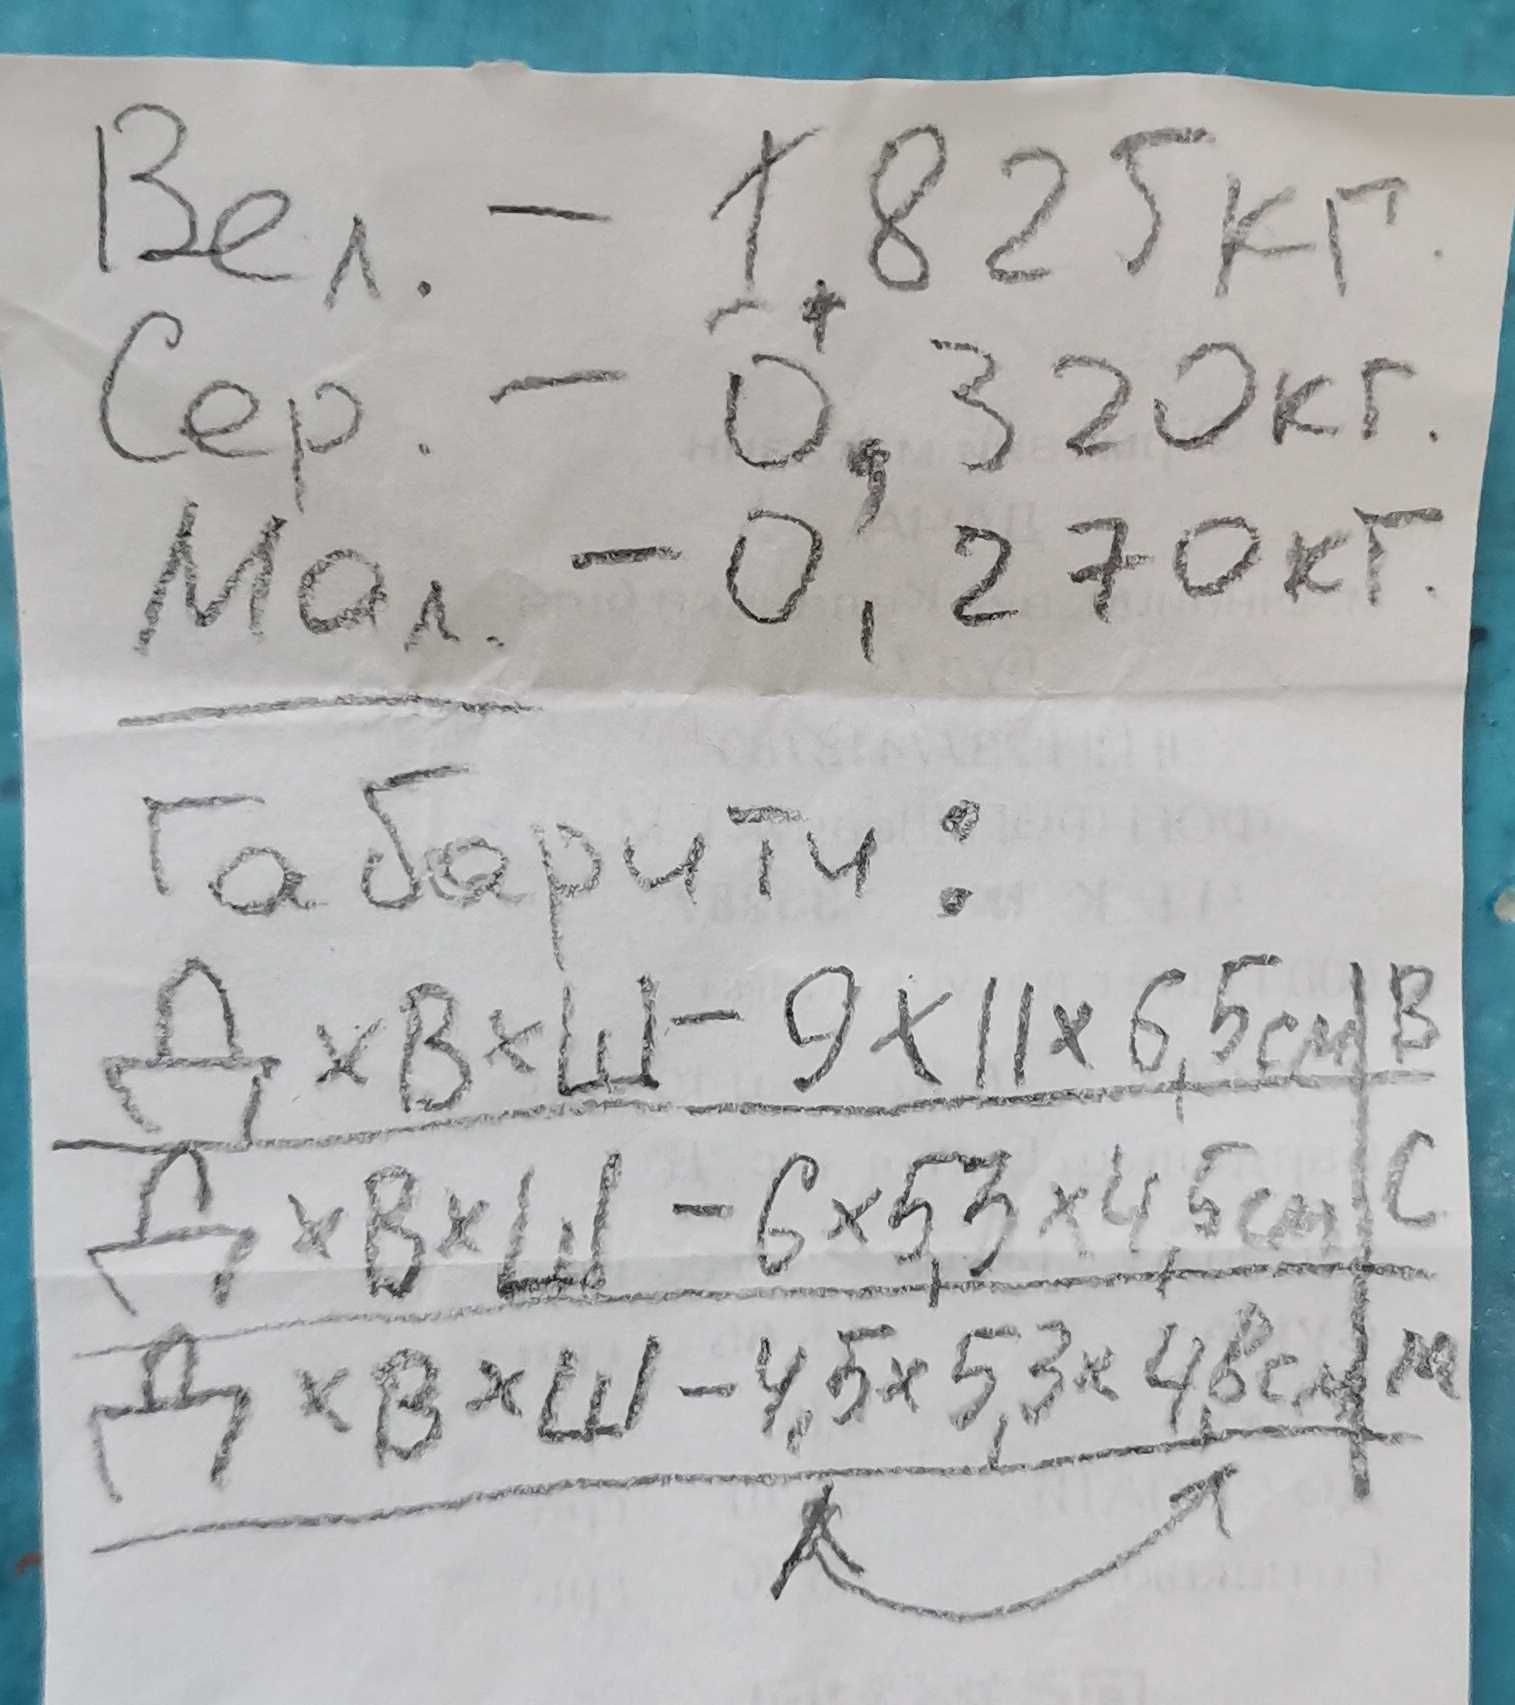 Вел. - 1,825кг.
Сер. - 0,320кг.
Мал. - 0,270кг.
Габарити:
Д×В×Ш - 9×11×6,5см В
Д×В×Ш - 6×5,3×4,5см С
Д×В×Ш - 4,5×5,3×4,8см М